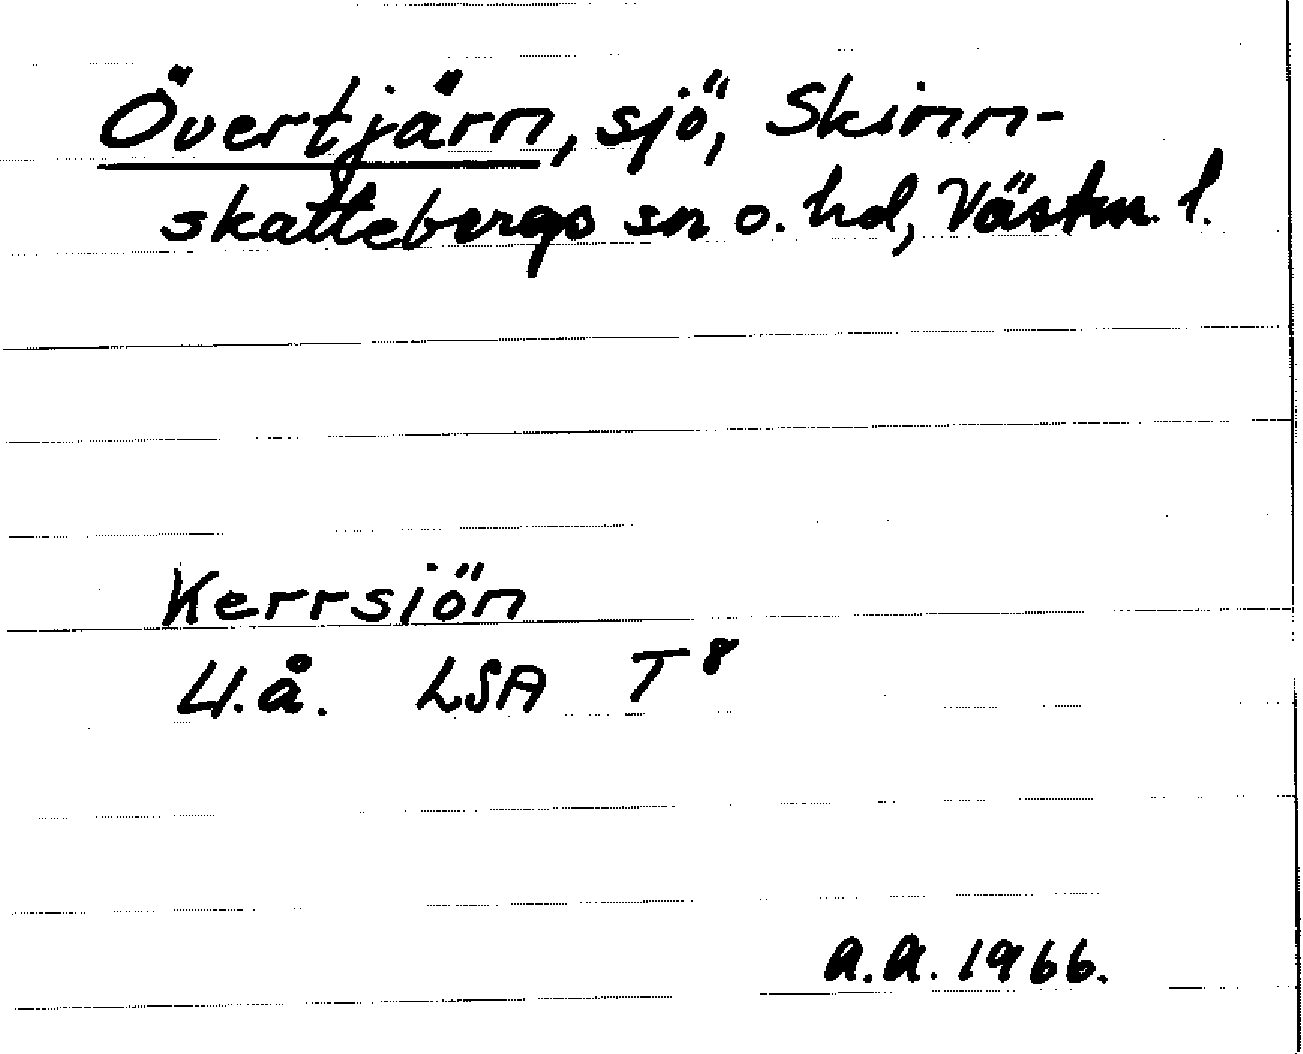 Övertjärn, sjö, Skinn-
skattebergs sn o. hd, Västm. l.
Kerrsiön
U.å. LSA T 8
A.A. 1966.